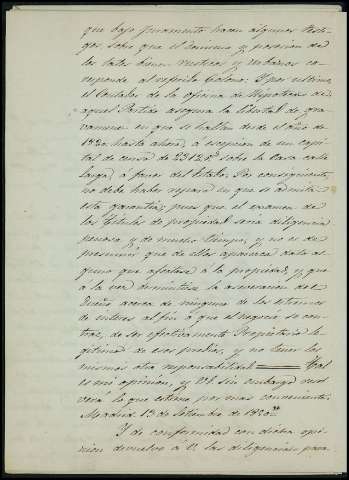 que bajo juramento hacen algunos testi-
gos, sobre que el dominio y posesion de
los tales bienes rusticos y urbanos co-
rresponde al referido Colono. Y por ultimo
el Contador de la oficina de Hipotecas de
aquel Partido asegura la libertad de gra-
vamenes en que se hallan desde el año de
hasta ahora, á escepcion de un capi-
tal de censo de sobre la Casa calle
larga, á favor del Estado. Por consiguiente,
no debe haber reparo en que se admita
esta garantia; pues que el examen de
los titulos de propiedad seria diligencia
penosa y de mucho tiempo, y no es de
presumir que de ellos apareciera dato al-
guno que afectara á la propiedad, y que
á la vez desmintiera la aseveracion del
Dueño acerca de ninguno de los estremos
de interes al fin á que el negocio se con-
trae, de ser efectivamente Propietario le-
gitimo de esos predios, y no tener los
mismos otra responsabilidad. Tal
es mi opinion, y VI sin embargo resol-
verá lo que estime por mas conveniente.
Madrid 13 de Setiembre de
Y de conformidad con dicha opi-
nion devuelvo á V. las diligencias para